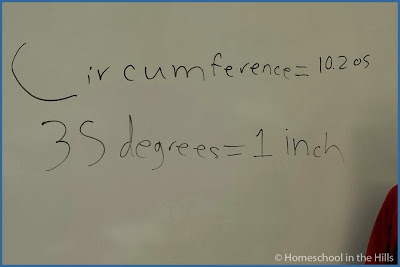 Circumference=10.205
35 degrees=1 inch
© Homeschool in the Hills